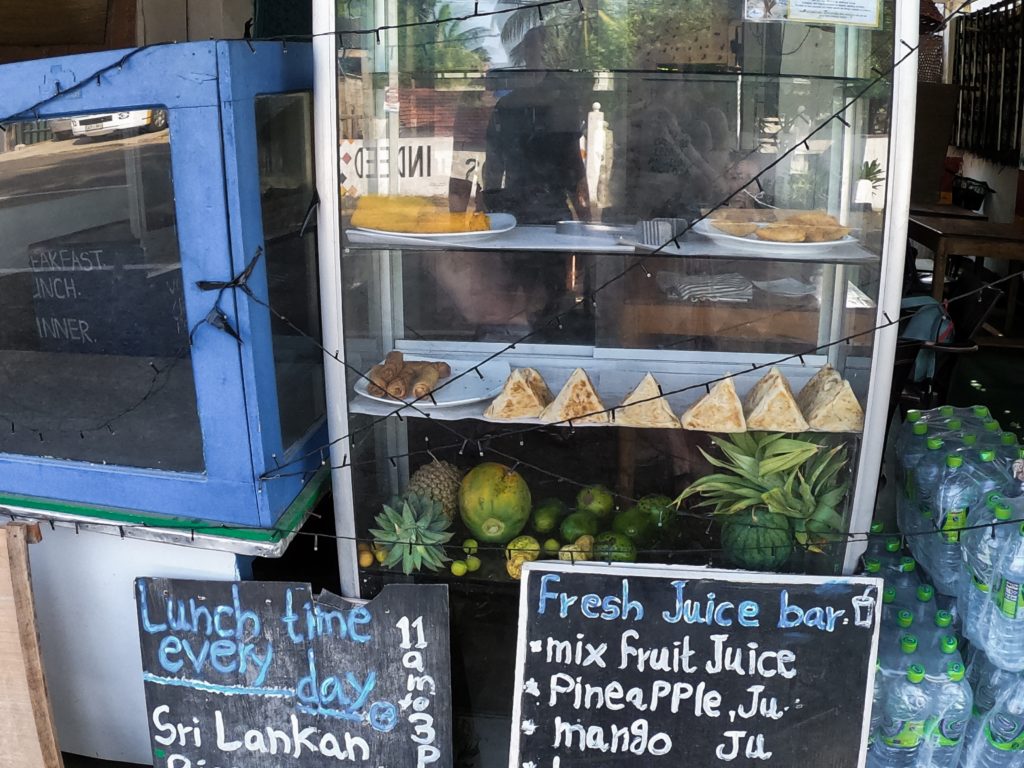 INDEED
EAKFAST.
UNCH.
INNER.
Lunch time
every
day
11
am
to
3
P
Sri Lankan
Fresh Juice bar.
* mix fruit Juice
* Pineapple, Ju.
* mango Ju